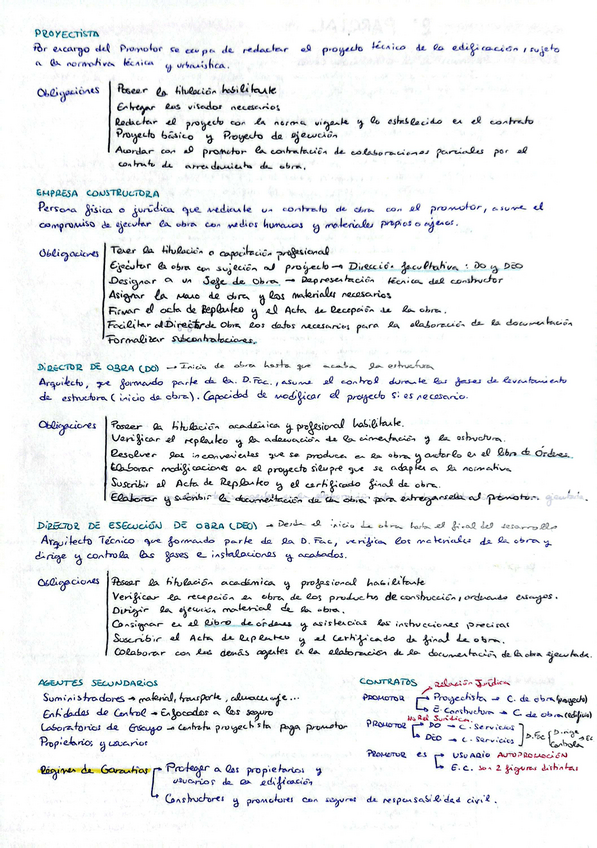 PROYECTISTA
Por encargo del Promotor se ocupa de redactar el proyecto técnico de la edificación, sujeto
a la normativa técnica y urbanística.
Obligaciones
Poseer la titulación habilitante
Entregar los visados necesarios
Redactar el proyecto con la norma vigente y lo establecido en el contrato
Proyecto básico y Proyecto de ejecución
Acordar con el promotor la contratación de colaboraciones parciales por el
contrato de arrendamiento de obra.
EMPRESA CONSTRUCTORA
Persona física o jurídica que mediante un contrato de obra con el promotor, asume el
compromiso de ejecutar la obra con medios humanos y materiales propios o ajenos.
Obligaciones
Tener la titulación o capacitación profesional
Ejecutar la obra con sujeción al proyecto → Dirección facultativa: DO y DEO
Designar a un Jefe de Obra → Representación técnica del constructor
Asignar la mano de obra y los materiales necesarios
Firmar el acta de Replanteo y el Acta de Recepción de la obra.
Facilitar al Director de Obra los datos necesarios para la elaboración de la documentación
Formalizar subcontrataciones.
DIRECTOR DE OBRA (DO) → Inicio de obra hasta que acaba la estructura
Arquitecto, que formando parte de la D.Fac., asume el control durante las fases de levantamiento
de estructura (inicio de obra). Capacidad de modificar el proyecto si es necesario.
Obligaciones
Poseer la titulación académica y profesional habilitante.
Verificar el replanteo y la adecuación de la cimentación y la estructura.
Resolver los inconvenientes que se produzca en la obra y anotarlo en el libro de Órdenes
Elaborar modificaciones en el proyecto siempre que se adapten a la normativa
Suscribir el Acta de Replanteo y el certificado final de obra.
Elaborar y suscribir la documentación de la obra para entregársela al promotor.
DIRECTOR DE ESECUCIÓN DE OBRA (DEO) → Desde el inicio de obra hasta el final del desarrollo
Arquitecto Técnico que formando parte de la D. Fac, verifica los materiales de la obra y
dirige y controla las fases e instalaciones y acabados.
Obligaciones
Poseer la titulación académica y profesional habilitante
Verificar la recepción en obra de los productos de construcción, ordenando ensayos.
Dirigir la ejecución material de la obra.
Consignar en el libro de órdenes y asistencias las instrucciones precisas
Suscribir el Acta de Replanteo y el Certificado de final de obra.
Colaborar con los demás agentes en la elaboración de la documentación de la obra ejecutada.
AGENTES SECUNDARIOS
Suministradores → material, transporte, almacenaje...
Entidades de Control → Enfocados a los seguro
Laboratorios de Ensayo → contrata proyectista paga promotor
Propietarios y usuarios
Régimen de Garantías
Proteger a los propietarios y
usuarios de la edificación
Constructores y promotores con seguros de responsabilidad civil.
CONTRATOS
Relación Jurídica
PROMOTOR
Proyectista → C. de obra (proyecto)
E. Constructora → C. de obra (edificio)
No Rel. Jurídica.
PROMOTOR
DO → C. Servicios
DEO → C. Servicios
D.Fac
Dirige
Controla
→ EC
PROMOTOR ES
USUARIO AUTOPROMOCIÓN
E.C. son 2 figuras distintas